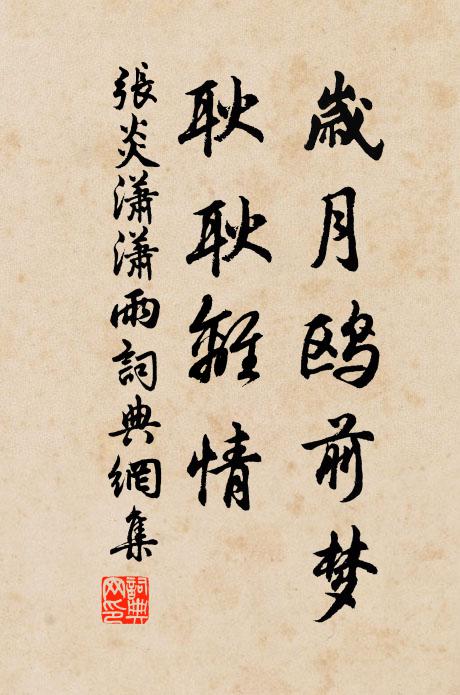 歲月鷗前梦
耿耿離情
張炎瀟瀟雨詞典網集
詞典網印